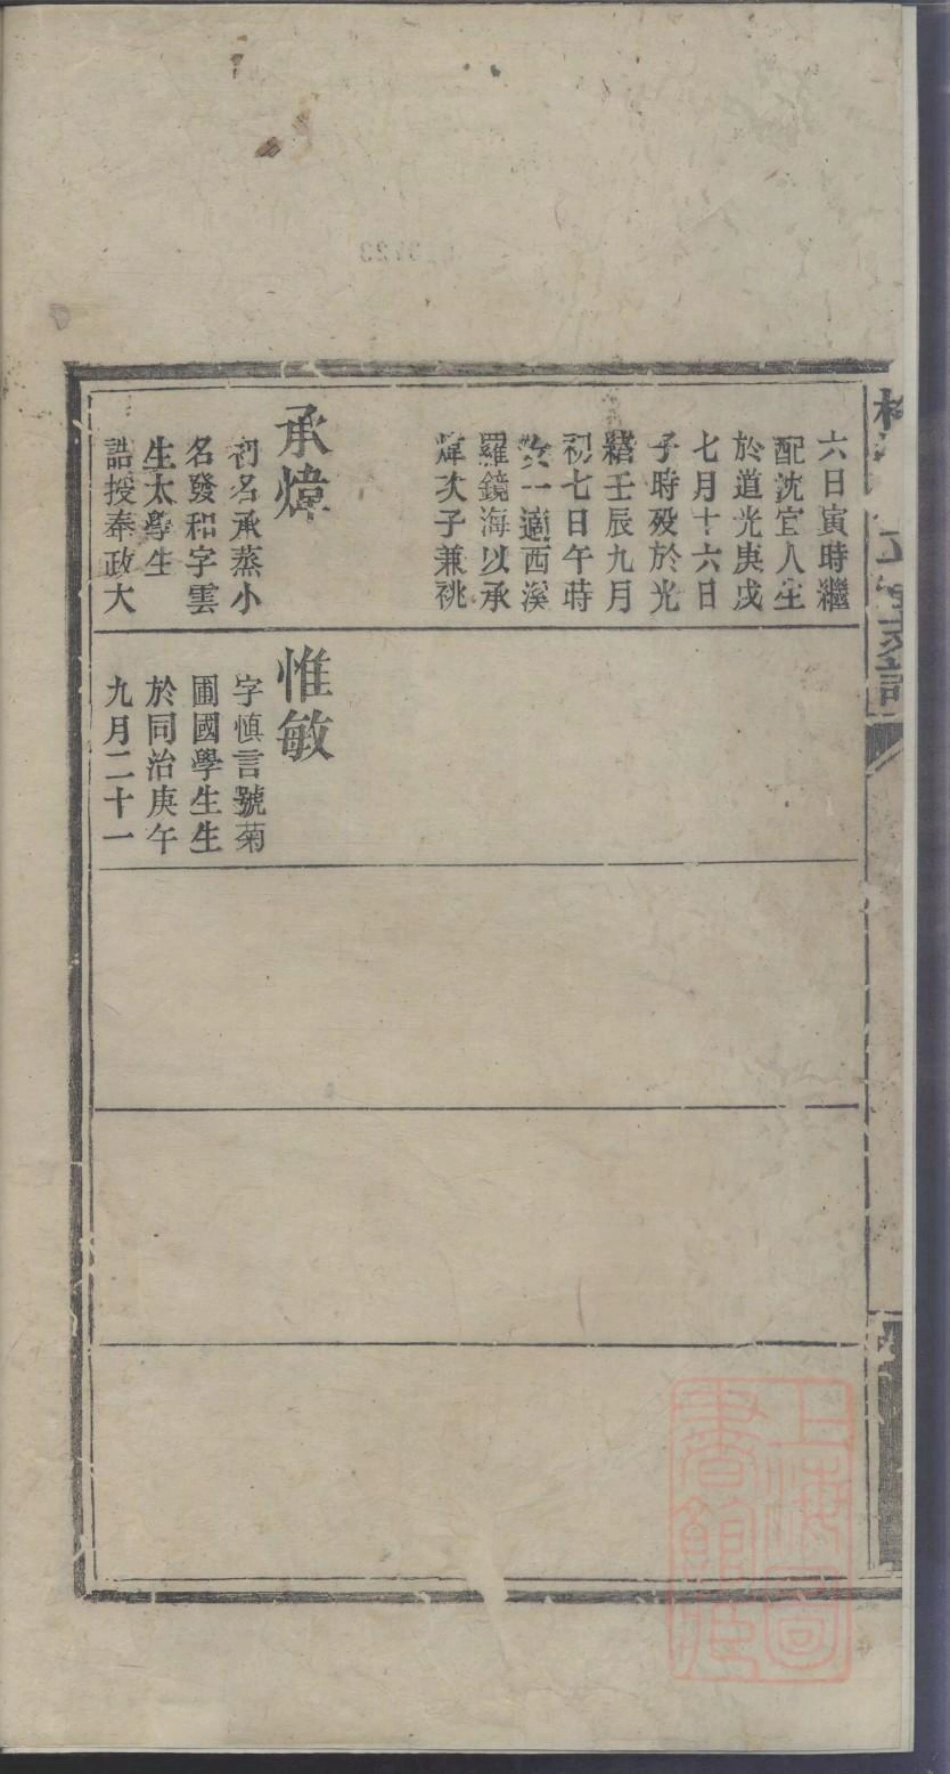 六日寅時繼
配沈宜人生
於道光庚戌
七月十六日
子時歿於光
緒壬辰九月
初七日午時
女一適西溪
羅鏡海以承
煒次子兼祧
承煒
初名承蒸小
名發和字雲
生太學生
誥授奉政大
惟敏
字慎言號菊
圃國學生生
於同治庚午
九月二十一
上海圖
書館藏